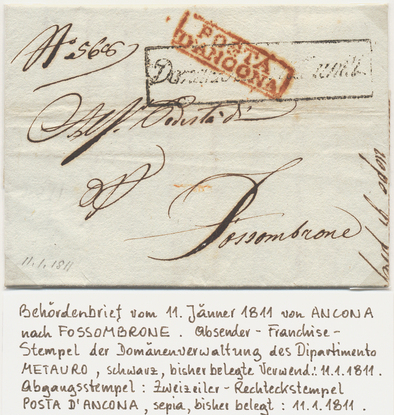 N.º 568
POSTA
D'ANCONA
Podestà di
Fossombrone
11.1.1811
Behördenbrief vom 11. Jänner 1811 von ANCONA
nach FOSSOMBRONE. Absender-Franchise-
Stempel der Domänenverwaltung des Dipartimento
METAURO, schwarz, bisher belegte Verwend.: 11.1.1811.
Abgangsstempel: Zweizeiler-Rechteckstempel
POSTA D'ANCONA, sepia, bisher belegt: 11.1.1811.